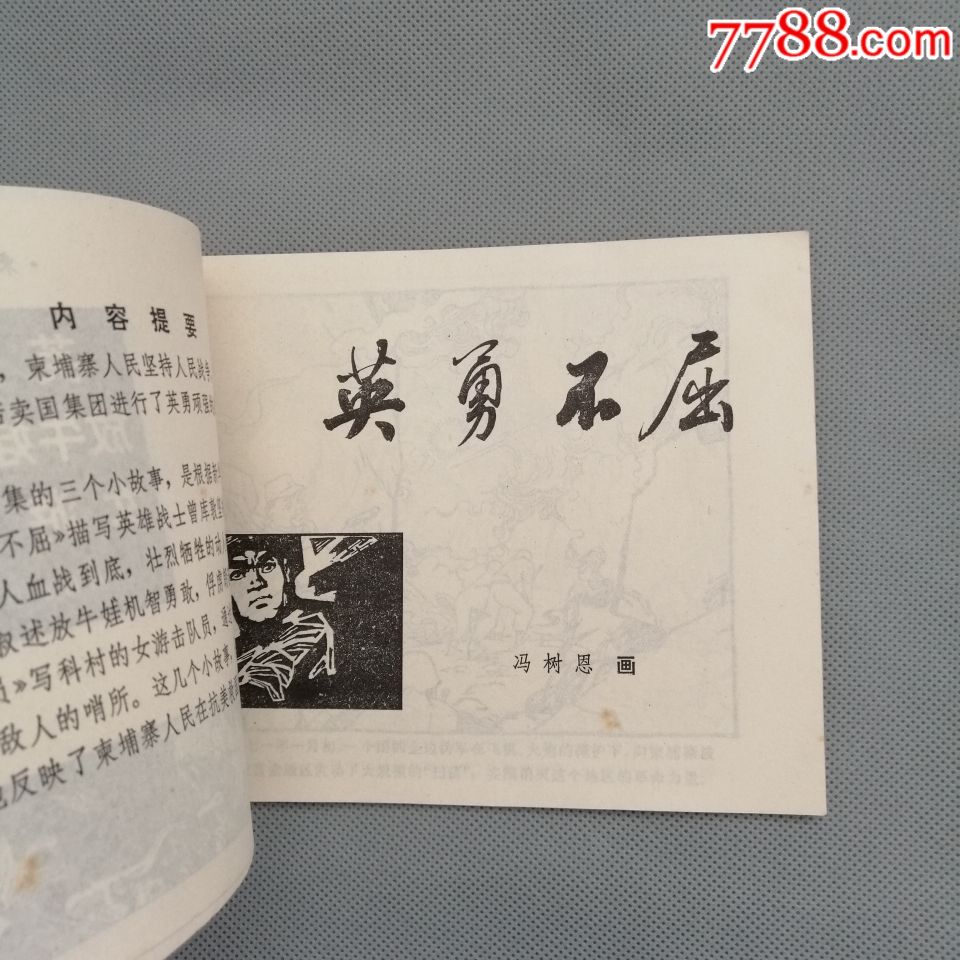 7788.com
内容提要
，柬埔寨人民坚持人民战争
卖国集团进行了英勇顽强的
集的三个小故事，是根据
不屈》描写英雄战士曾库敦坚
人血战到底，壮烈牺牲的动
叙述放牛娃机智勇敢，俘虏
员》写科村的女游击队员，通
敌人的哨所。这几个小故事，
反映了柬埔寨人民在抗美
英勇不屈
冯树恩 画